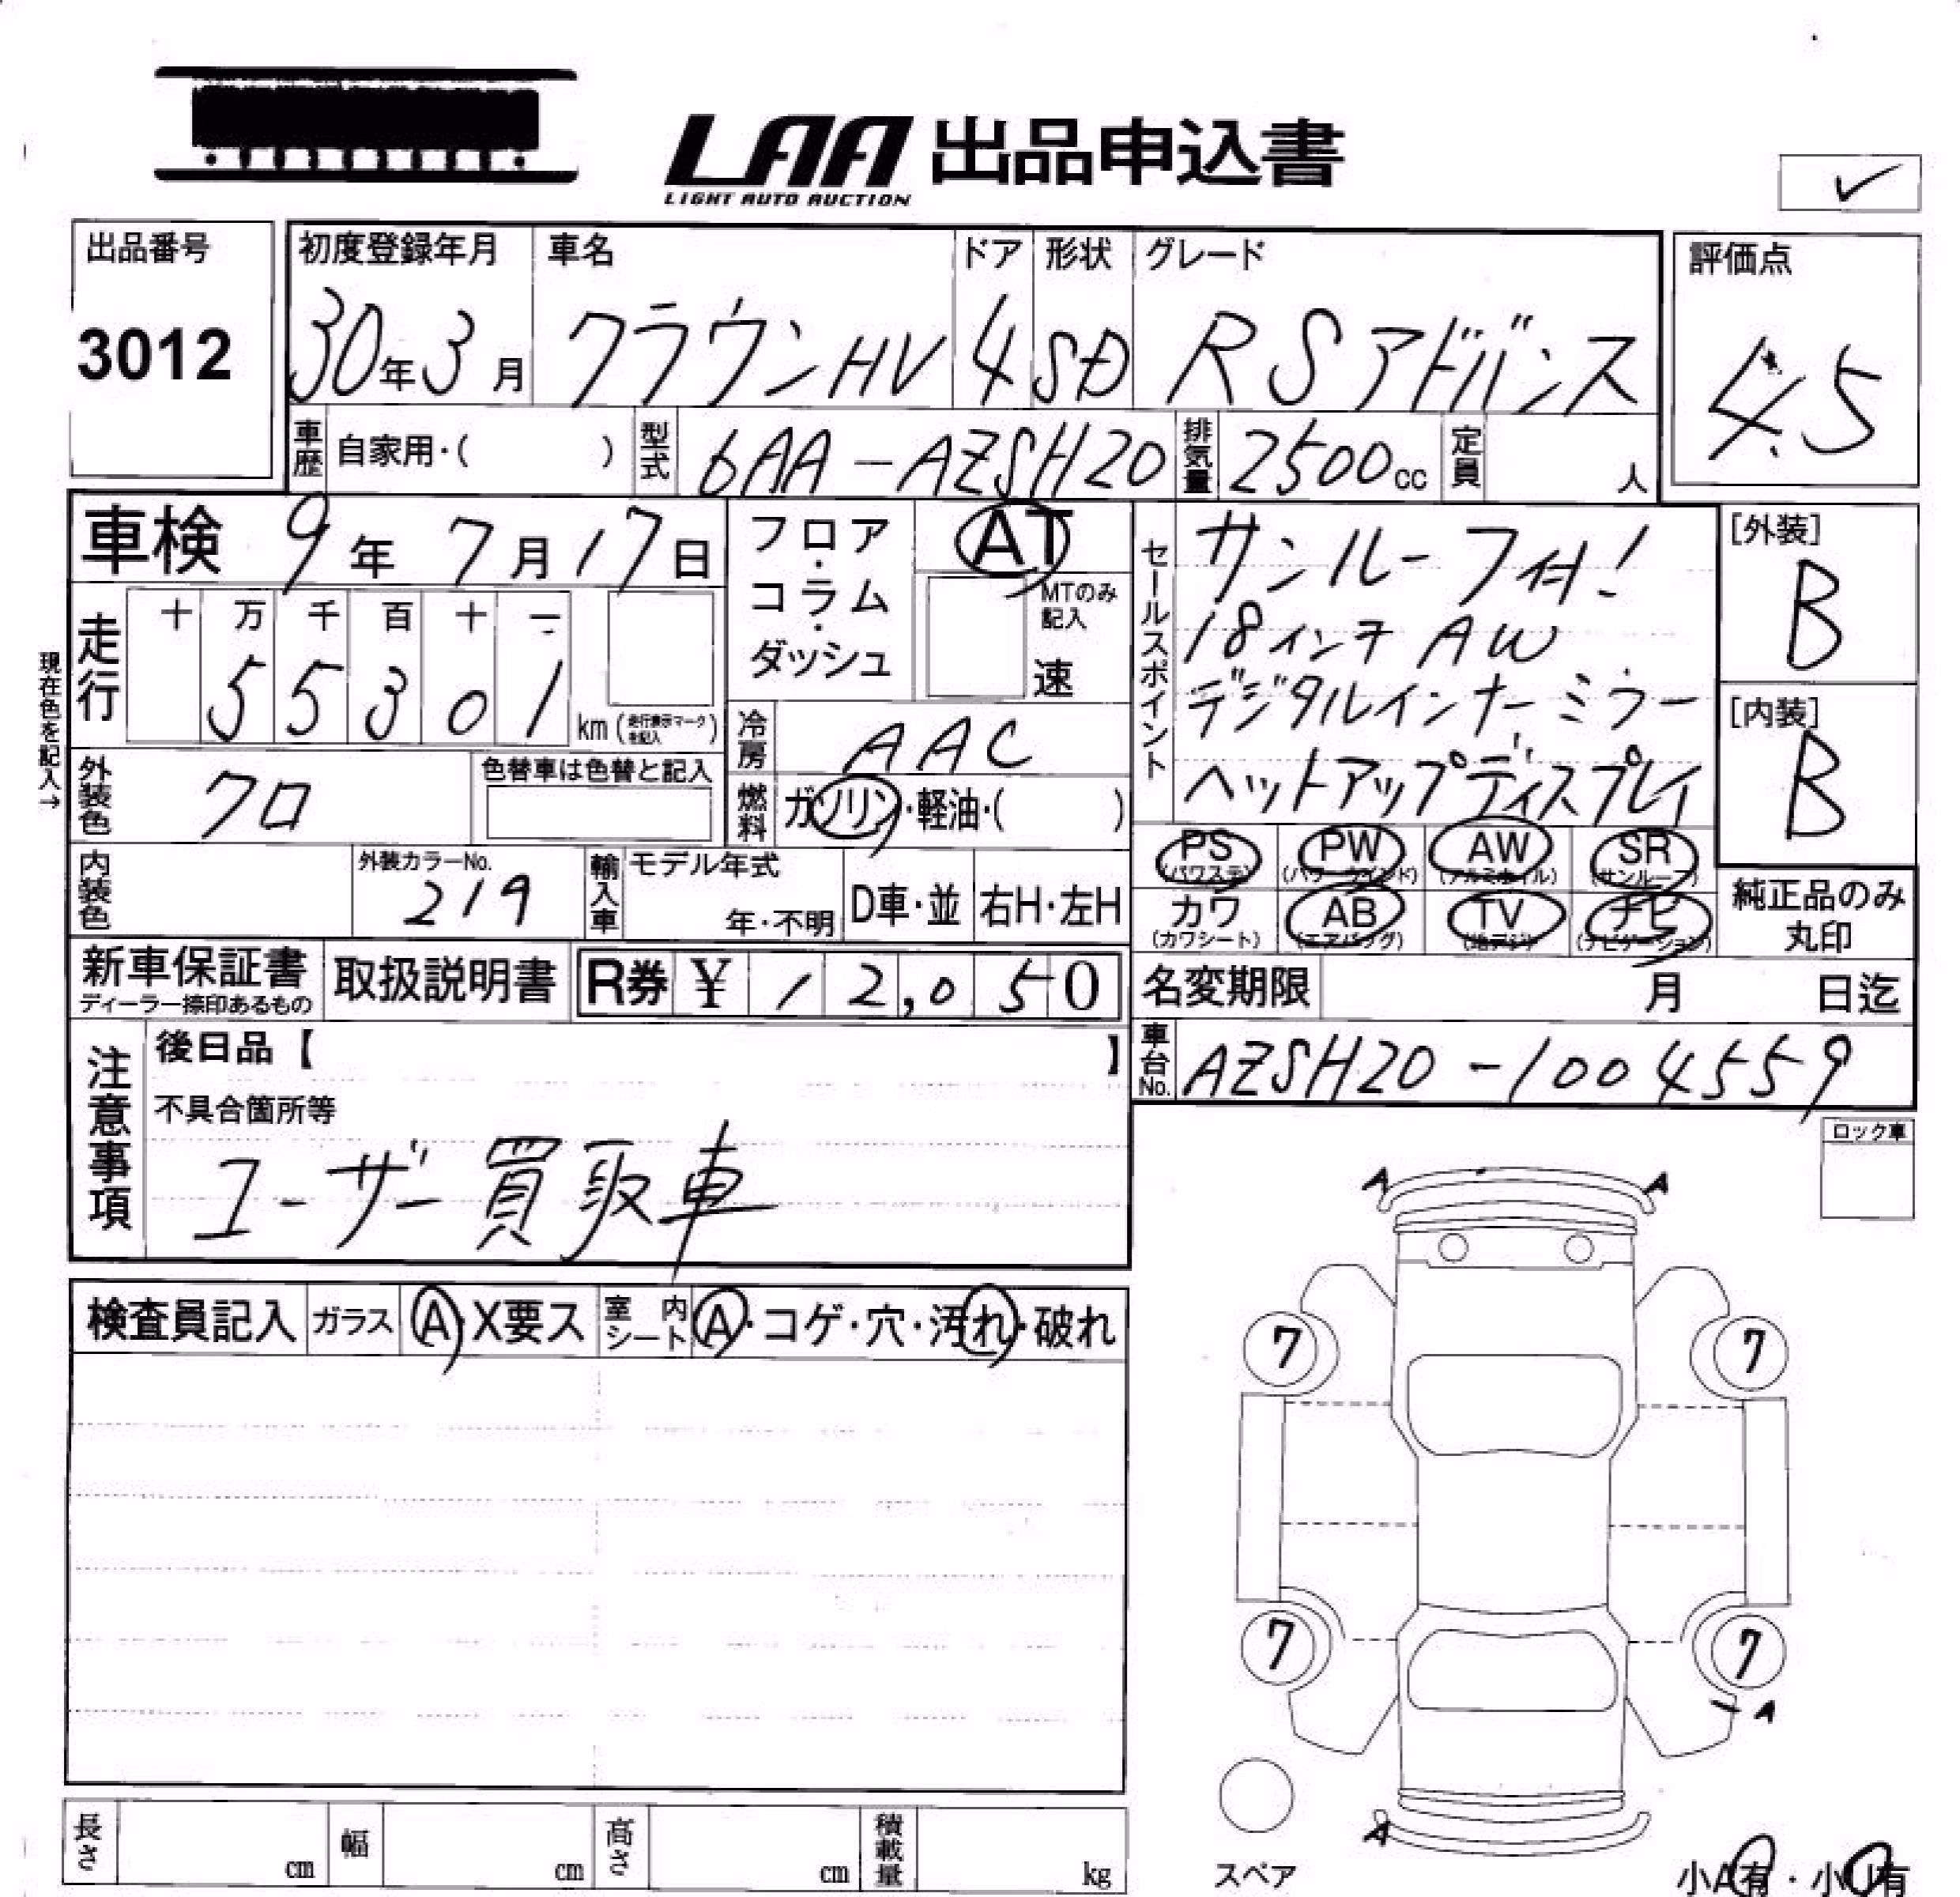 LAA 出品申込書
LIGHT AUTO AUCTION
出品番号
3012
初度登録年月 車名 ドア 形状 グレード
30年3月 クラウンHV 4 SD RSアドバンス
評価点
4.5
車歴 自家用・( ) 型式 6AA-AZSH20 排気量 2500cc 定員 人
車検 9年 7月17日
フロア・コラム・ダッシュ
AT
MTのみ記入
速
現在色を記入→
走行 十 万 千 百 十 一
5 5 3 0 1 km (走行表示マークを記入)
冷房 AAC
燃料 ガソリン・軽油・( )
外装色 クロ 色替車は色替と記入
内装色 外装カラーNo. 219
輸入車 モデル年式 年・不明 D車・並 右H・左H
セールスポイント
サンルーフ付!
18インチ AW
デジタルインナーミラー
ヘットアップディスプレイ
[外装]
B
[内装]
B
PS PW AW SR
(パワステ) (パワーウインド) (アルミホイル) (サンルーフ)
カワ AB TV ナビ
(カワシート) (エアバッグ) (地デジ) (ナビゲーション)
純正品のみ
丸印
新車保証書
ディーラー捺印あるもの
取扱説明書
R券 ¥ 12,050
名変期限 月 日迄
車台No. AZSH20-1004559
注意事項
後日品【 】
不具合箇所等
ユーザー買取車
ロック車
検査員記入 ガラス A・X要ス 室内シート A・コゲ・穴・汚れ・破れ
A A
7 7
7 7
A
A
スペア
長さ cm 幅 cm 高さ cm 積載量 kg
小A有・小U有